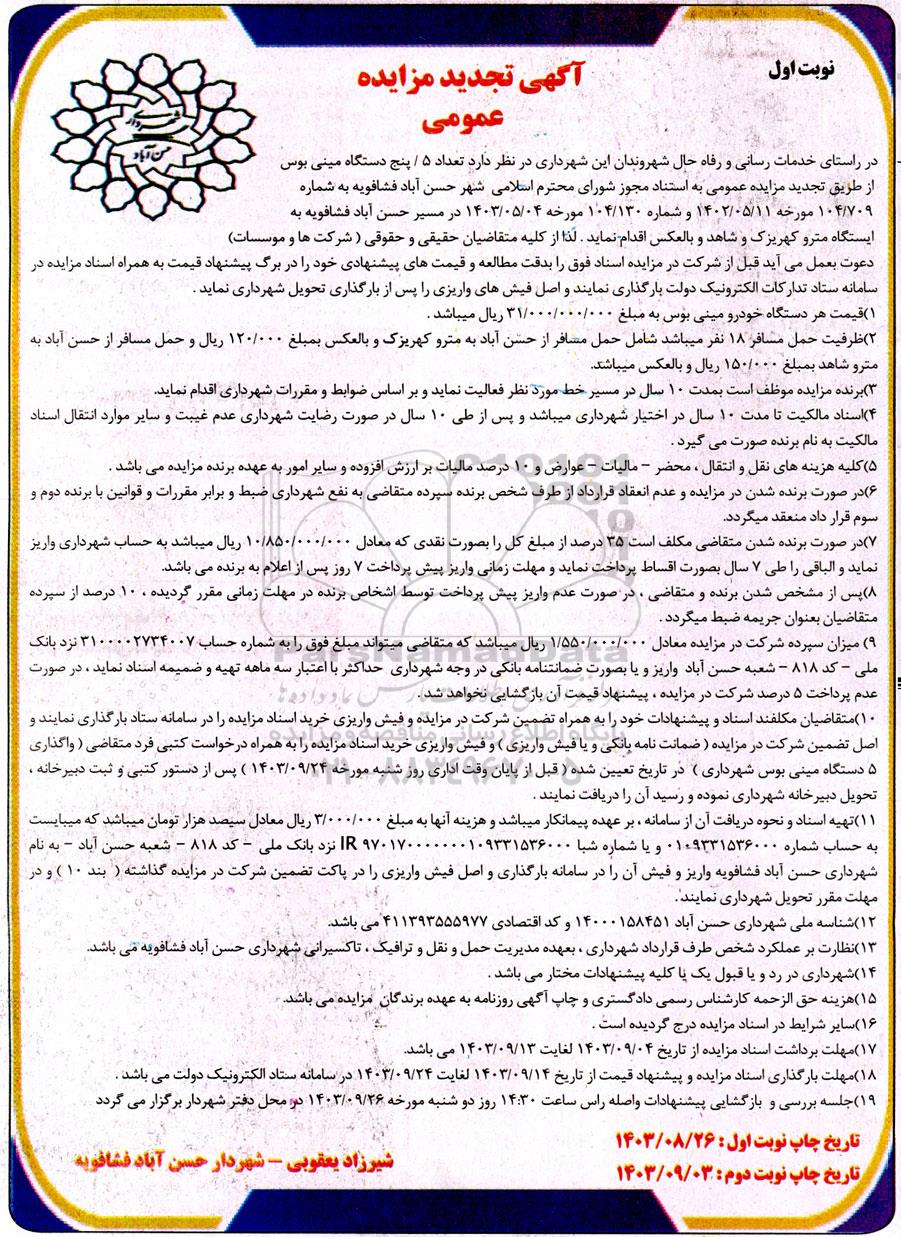 نوبت اول
آگهی تجدید مزایده
عمومی
شهرداری
حسن آباد
در راستای خدمات رسانی و رفاه حال شهروندان این شهرداری در نظر دارد تعداد ۵ / پنج دستگاه مینی بوس
از طریق تجدید مزایده عمومی به استناد مجوز شورای محترم اسلامی شهر حسن آباد فشافویه به شماره
۱۰۴/۷۰۹ مورخه ۱۴۰۲/۰۵/۱۱ و شماره ۱۰۴/۱۳۰ مورخه ۱۴۰۳/۰۵/۰۴ در مسیر حسن آباد فشافویه به
ایستگاه مترو کهریزک و شاهد و بالعکس اقدام نماید . لذا از کلیه متقاضیان حقیقی و حقوقی ( شرکت ها و موسسات)
دعوت بعمل می آید قبل از شرکت در مزایده اسناد فوق را بدقت مطالعه و قیمت های پیشنهادی خود را در برگ پیشنهاد قیمت به همراه اسناد مزایده در
سامانه ستاد تدارکات الکترونیک دولت بارگذاری نمایند و اصل فیش های واریزی را پس از بارگذاری تحویل شهرداری نماید .
۱)قیمت هر دستگاه خودرو مینی بوس به مبلغ ۳۱/۰۰۰/۰۰۰/۰۰۰ ریال میباشد .
۲)ظرفیت حمل مسافر ۱۸ نفر میباشد شامل حمل مسافر از حسن آباد به مترو کهریزک و بالعکس بمبلغ ۱۲۰/۰۰۰ ریال و حمل مسافر از حسن آباد به
مترو شاهد بمبلغ ۱۵۰/۰۰۰ ریال و بالعکس میباشد.
۳)برنده مزایده موظف است بمدت ۱۰ سال در مسیر خط مورد نظر فعالیت نماید و بر اساس ضوابط و مقررات شهرداری اقدام نماید.
۴)اسناد مالکیت تا مدت ۱۰ سال در اختیار شهرداری میباشد و پس از طی ۱۰ سال در صورت رضایت شهرداری عدم غیبت و سایر موارد انتقال اسناد
مالکیت به نام برنده صورت می گیرد .
۵)کلیه هزینه های نقل و انتقال ، محضر – مالیات – عوارض و ۱۰ درصد مالیات بر ارزش افزوده و سایر امور به عهده برنده مزایده می باشد .
۶)در صورت برنده شدن در مزایده و عدم انعقاد قرارداد از طرف شخص برنده سپرده متقاضی به نفع شهرداری ضبط و برابر مقررات و قوانین با برنده دوم و
سوم قرار داد منعقد میگردد.
۷)در صورت برنده شدن متقاضی مکلف است ۳۵ درصد از مبلغ کل را بصورت نقدی که معادل ۱۰/۸۵۰/۰۰۰/۰۰۰ ریال میباشد به حساب شهرداری واریز
نماید و الباقی را طی ۷ سال بصورت اقساط پرداخت نماید و مهلت زمانی واریز پیش پرداخت ۷ روز پس از اعلام به برنده می باشد.
۸)پس از مشخص شدن برنده و متقاضی ، در صورت عدم واریز پیش پرداخت توسط اشخاص برنده در مهلت زمانی مقرر گردیده ، ۱۰ درصد از سپرده
متقاضیان بعنوان جریمه ضبط میگردد .
۹) میزان سپرده شرکت در مزایده معادل ۱/۵۵۰/۰۰۰/۰۰۰ ریال میباشد که متقاضی میتواند مبلغ فوق را به شماره حساب ۳۱۰۰۰۰۲۷۳۴۰۰۷ نزد بانک
ملی – کد ۸۱۸ – شعبه حسن آباد واریز و یا بصورت ضمانتنامه بانکی در وجه شهرداری حداکثر با اعتبار سه ماهه تهیه و ضمیمه اسناد نماید ، در صورت
عدم پرداخت ۵ درصد شرکت در مزایده ، پیشنهاد قیمت آن بازگشایی نخواهد شد .
۱۰)متقاضیان مکلفند اسناد و پیشنهادات خود را به همراه تضمین شرکت در مزایده و فیش واریزی خرید اسناد مزایده را در سامانه ستاد بارگذاری نمایند و
اصل تضمین شرکت در مزایده ( ضمانت نامه بانکی و یا فیش واریزی ) و فیش واریزی خرید اسناد مزایده را به همراه درخواست کتبی فرد متقاضی ( واگذاری
۵ دستگاه مینی بوس شهرداری ) در تاریخ تعیین شده ( قبل از پایان وقت اداری روز شنبه مورخه ۱۴۰۳/۰۹/۲۴ ) پس از دستور کتبی و ثبت دبیرخانه ،
تحویل دبیرخانه شهرداری نموده و رسید آن را دریافت نمایند .
۱۱)تهیه اسناد و نحوه دریافت آن از سامانه ، بر عهده پیمانکار میباشد و هزینه آنها به مبلغ ۳/۰۰۰/۰۰۰ ریال معادل سیصد هزار تومان میباشد که میبایست
به حساب شماره ۰۱۰۹۳۳۱۵۳۶۰۰۰ و یا شماره شبا IR ۹۷۰۱۷۰۰۰۰۰۰۰۱۰۹۳۳۱۵۳۶۰۰۰ نزد بانک ملی – کد ۸۱۸ – شعبه حسن آباد – به نام
شهرداری حسن آباد فشافویه واریز و فیش آن را در سامانه بارگذاری و اصل فیش واریزی را در پاکت تضمین شرکت در مزایده گذاشته ( بند ۱۰ ) و در
مهلت مقرر تحویل شهرداری نمایند .
۱۲)شناسه ملی شهرداری حسن آباد ۱۴۰۰۰۱۵۸۴۵۱ و کد اقتصادی ۴۱۱۳۹۳۵۵۵۹۷۷ می باشد.
۱۳)نظارت بر عملکرد شخص طرف قرارداد شهرداری ، بعهده مدیریت حمل و نقل و ترافیک ، تاکسیرانی شهرداری حسن آباد فشافویه می باشد.
۱۴)شهرداری در رد و یا قبول یک یا کلیه پیشنهادات مختار می باشد .
۱۵)هزینه حق الزحمه کارشناس رسمی دادگستری و چاپ آگهی روزنامه به عهده برندگان مزایده می باشد.
۱۶)سایر شرایط در اسناد مزایده درج گردیده است .
۱۷)مهلت برداشت اسناد مزایده از تاریخ ۱۴۰۳/۰۹/۰۴ لغایت ۱۴۰۳/۰۹/۱۳ می باشد.
۱۸)مهلت بارگذاری اسناد مزایده و پیشنهاد قیمت از تاریخ ۱۴۰۳/۰۹/۱۴ لغایت ۱۴۰۳/۰۹/۲۴ در سامانه ستاد الکترونیک دولت می باشد .
۱۹)جلسه بررسی و بازگشایی پیشنهادات واصله راس ساعت ۱۴:۳۰ روز دو شنبه مورخه ۱۴۰۳/۰۹/۲۶ در محل دفتر شهردار برگزار می گردد
تاریخ چاپ نوبت اول : ۱۴۰۳/۰۸/۲۶
تاریخ چاپ نوبت دوم : ۱۴۰۳/۰۹/۰۳
شیرزاد یعقوبی – شهردار حسن آباد فشافویه